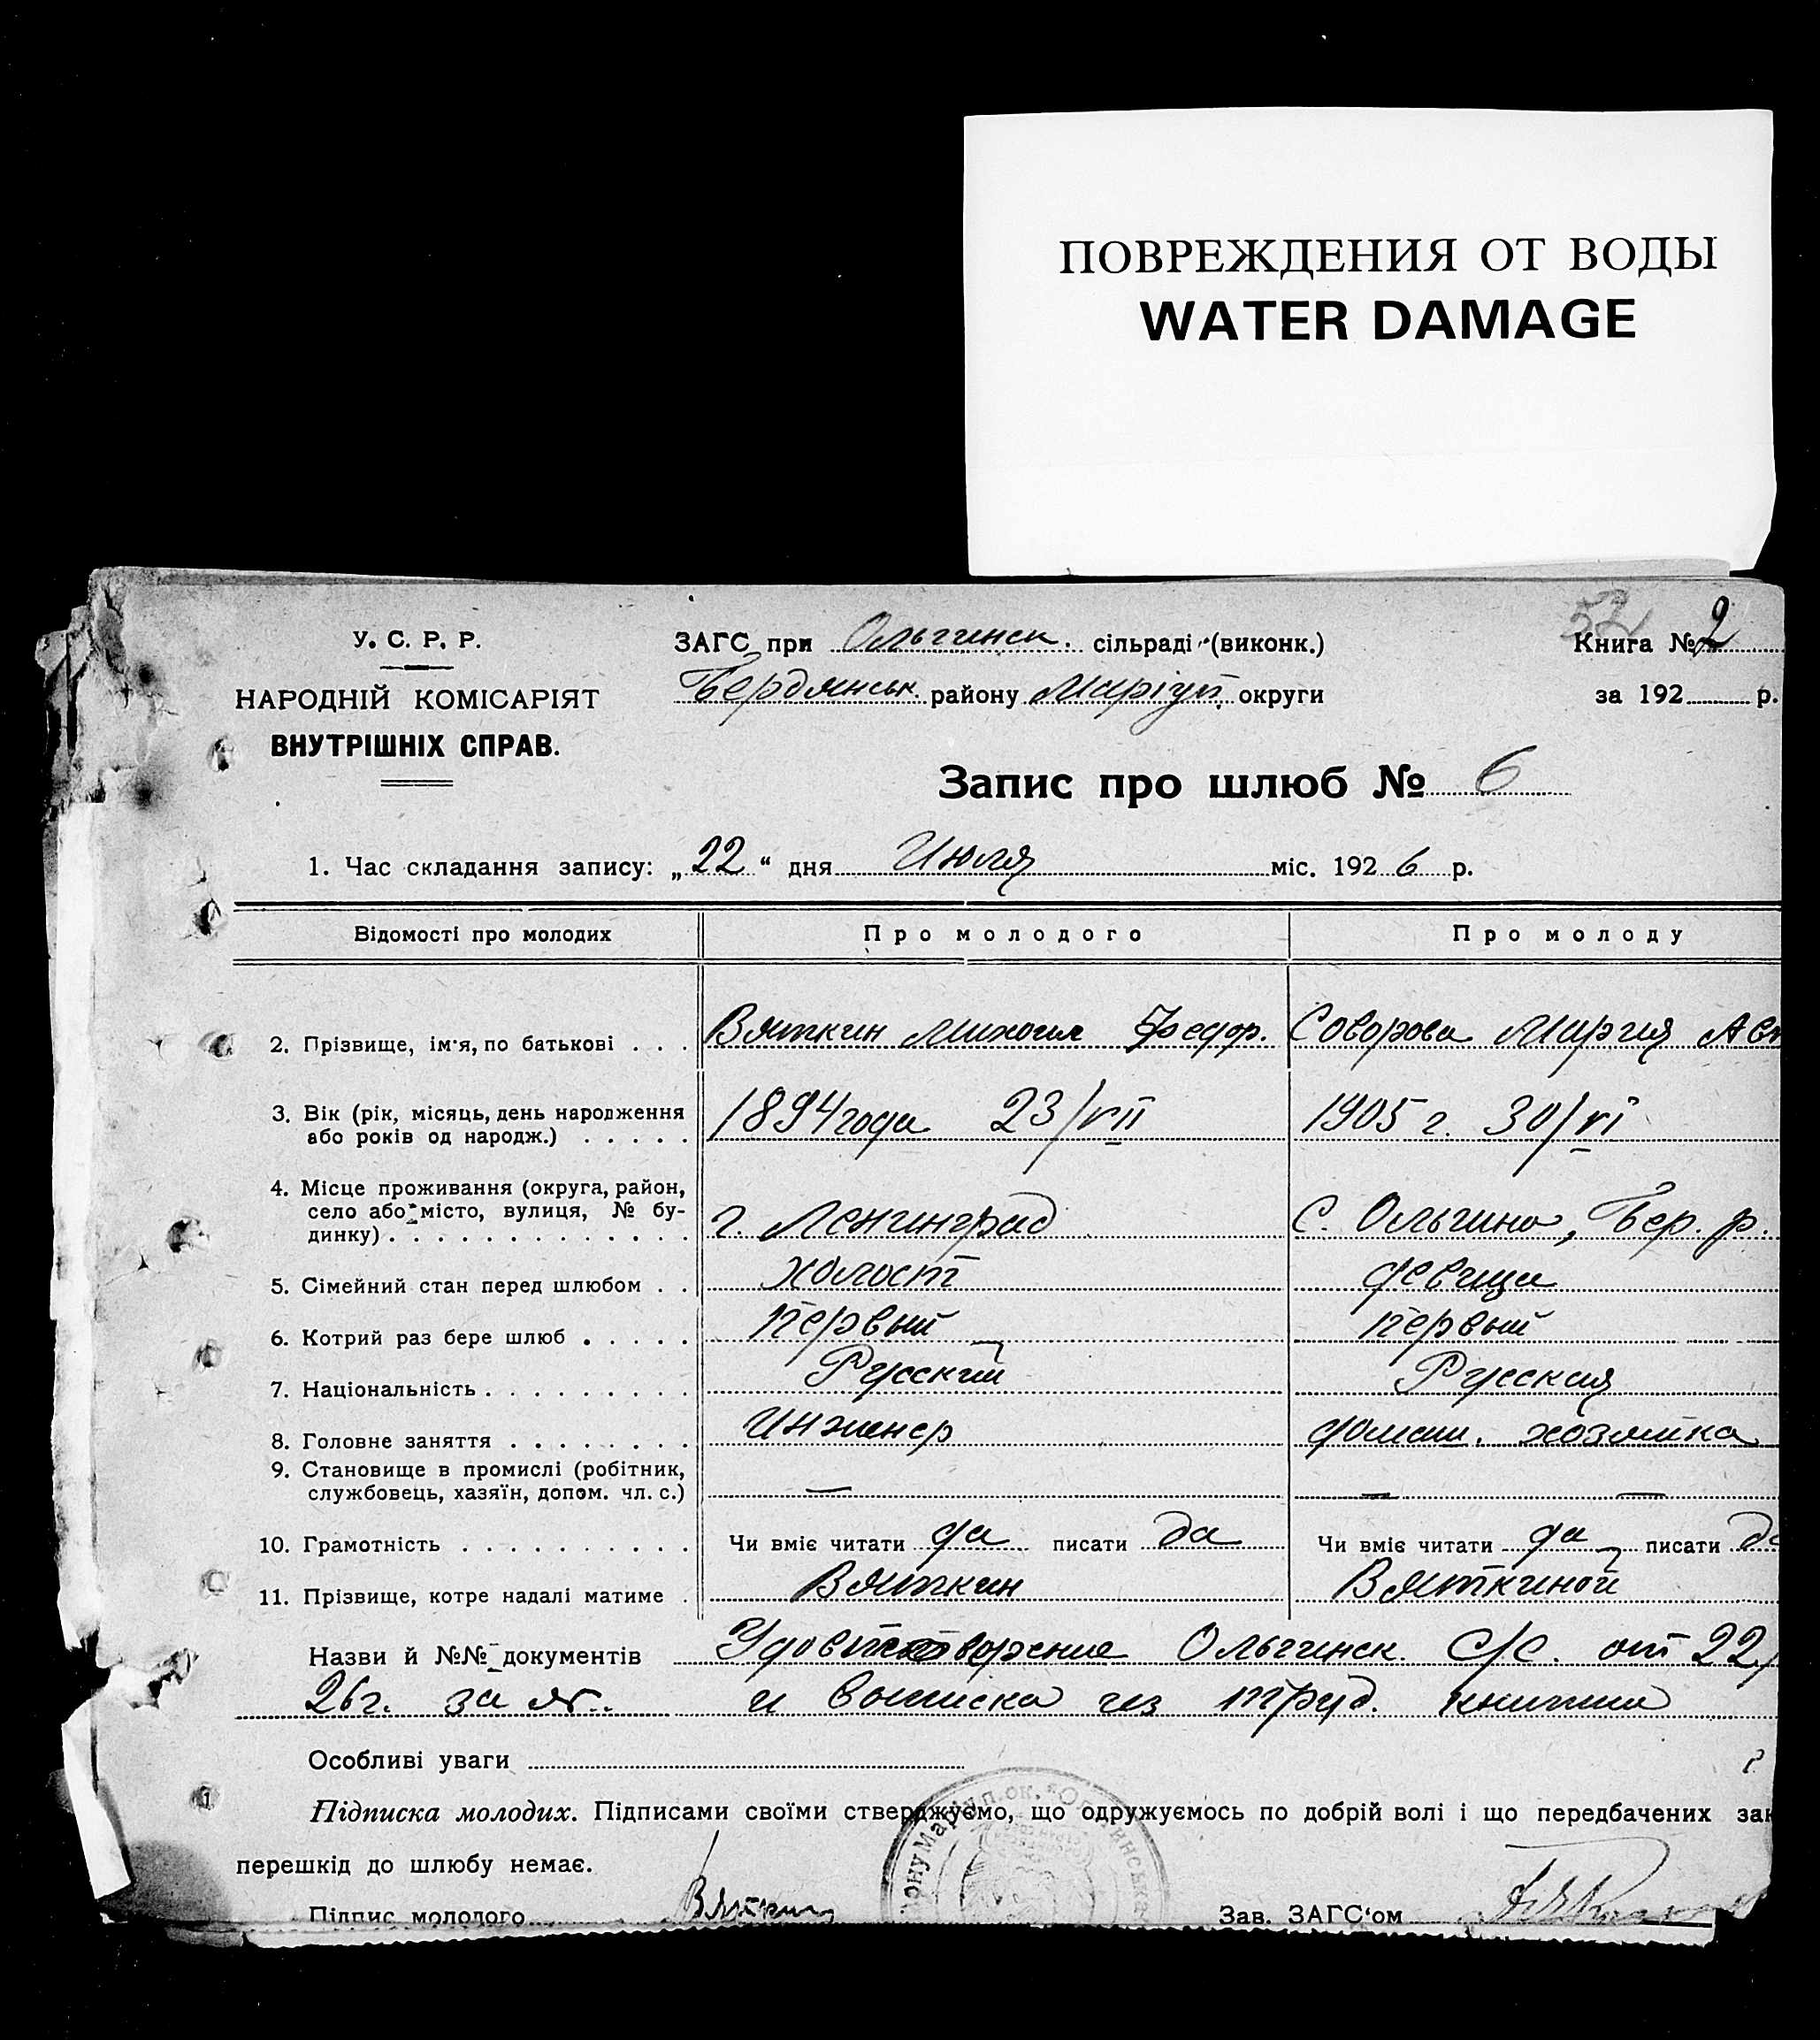 ПОВРЕЖДЕНИЯ ОТ ВОДЫ
WATER DAMAGE
У. С. Р. Р.
НАРОДНІЙ КОМІСАРІЯТ
ВНУТРІШНІХ СПРАВ.
ЗАГС при Ольгинск. сільраді (виконк.)
Бердянськ. району Маріуп. округи
52
Книга № 2
за 192 р.
Запис про шлюб № 6
1. Час складання запису: „22“ дня Июля міс. 1926 р.
Відомості про молодих Про молодого Про молоду
2. Прізвище, ім'я, по батькові . . . Вяткин Михаил Федор. Соворова Мария Ав
3. Вік (рік, місяць, день народження
або років од народж.) . . . . . 1894 года 23/VII 1905 г. 30/VI
4. Місце проживання (округа, район,
село або місто, вулиця, № бу-
динку) . . . . . . . . . . . . . г. Ленинград С. Ольгино, Бер. р.
5. Сімейний стан перед шлюбом . . холост девица
6. Котрий раз бере шлюб . . . . . первый первый
7. Національність . . . . . . . . . Русский Русская
8. Головне заняття . . . . . . . . Инженер домаш. хозяйка
9. Становище в промислі (робітник,
службовець, хазяїн, допом. чл. с.) — — —
10. Грамотність . . . . . . . . . . Чи вміє читати да писати да Чи вміє читати да писати да
11. Прізвище, котре надалі матиме . Вяткин Вяткиной
Назви й №№ документів Ольгинск. С/С. от 22/
26 г. за №.. и выписка из труд. книжки
Особливі уваги
Підписка молодих. Підписами своїми стверджуємо, що одружуємось по добрій волі і що передбачених зак
перешкід до шлюбу немає.
Підпис молодого Вяткин Зав. ЗАГС'ом